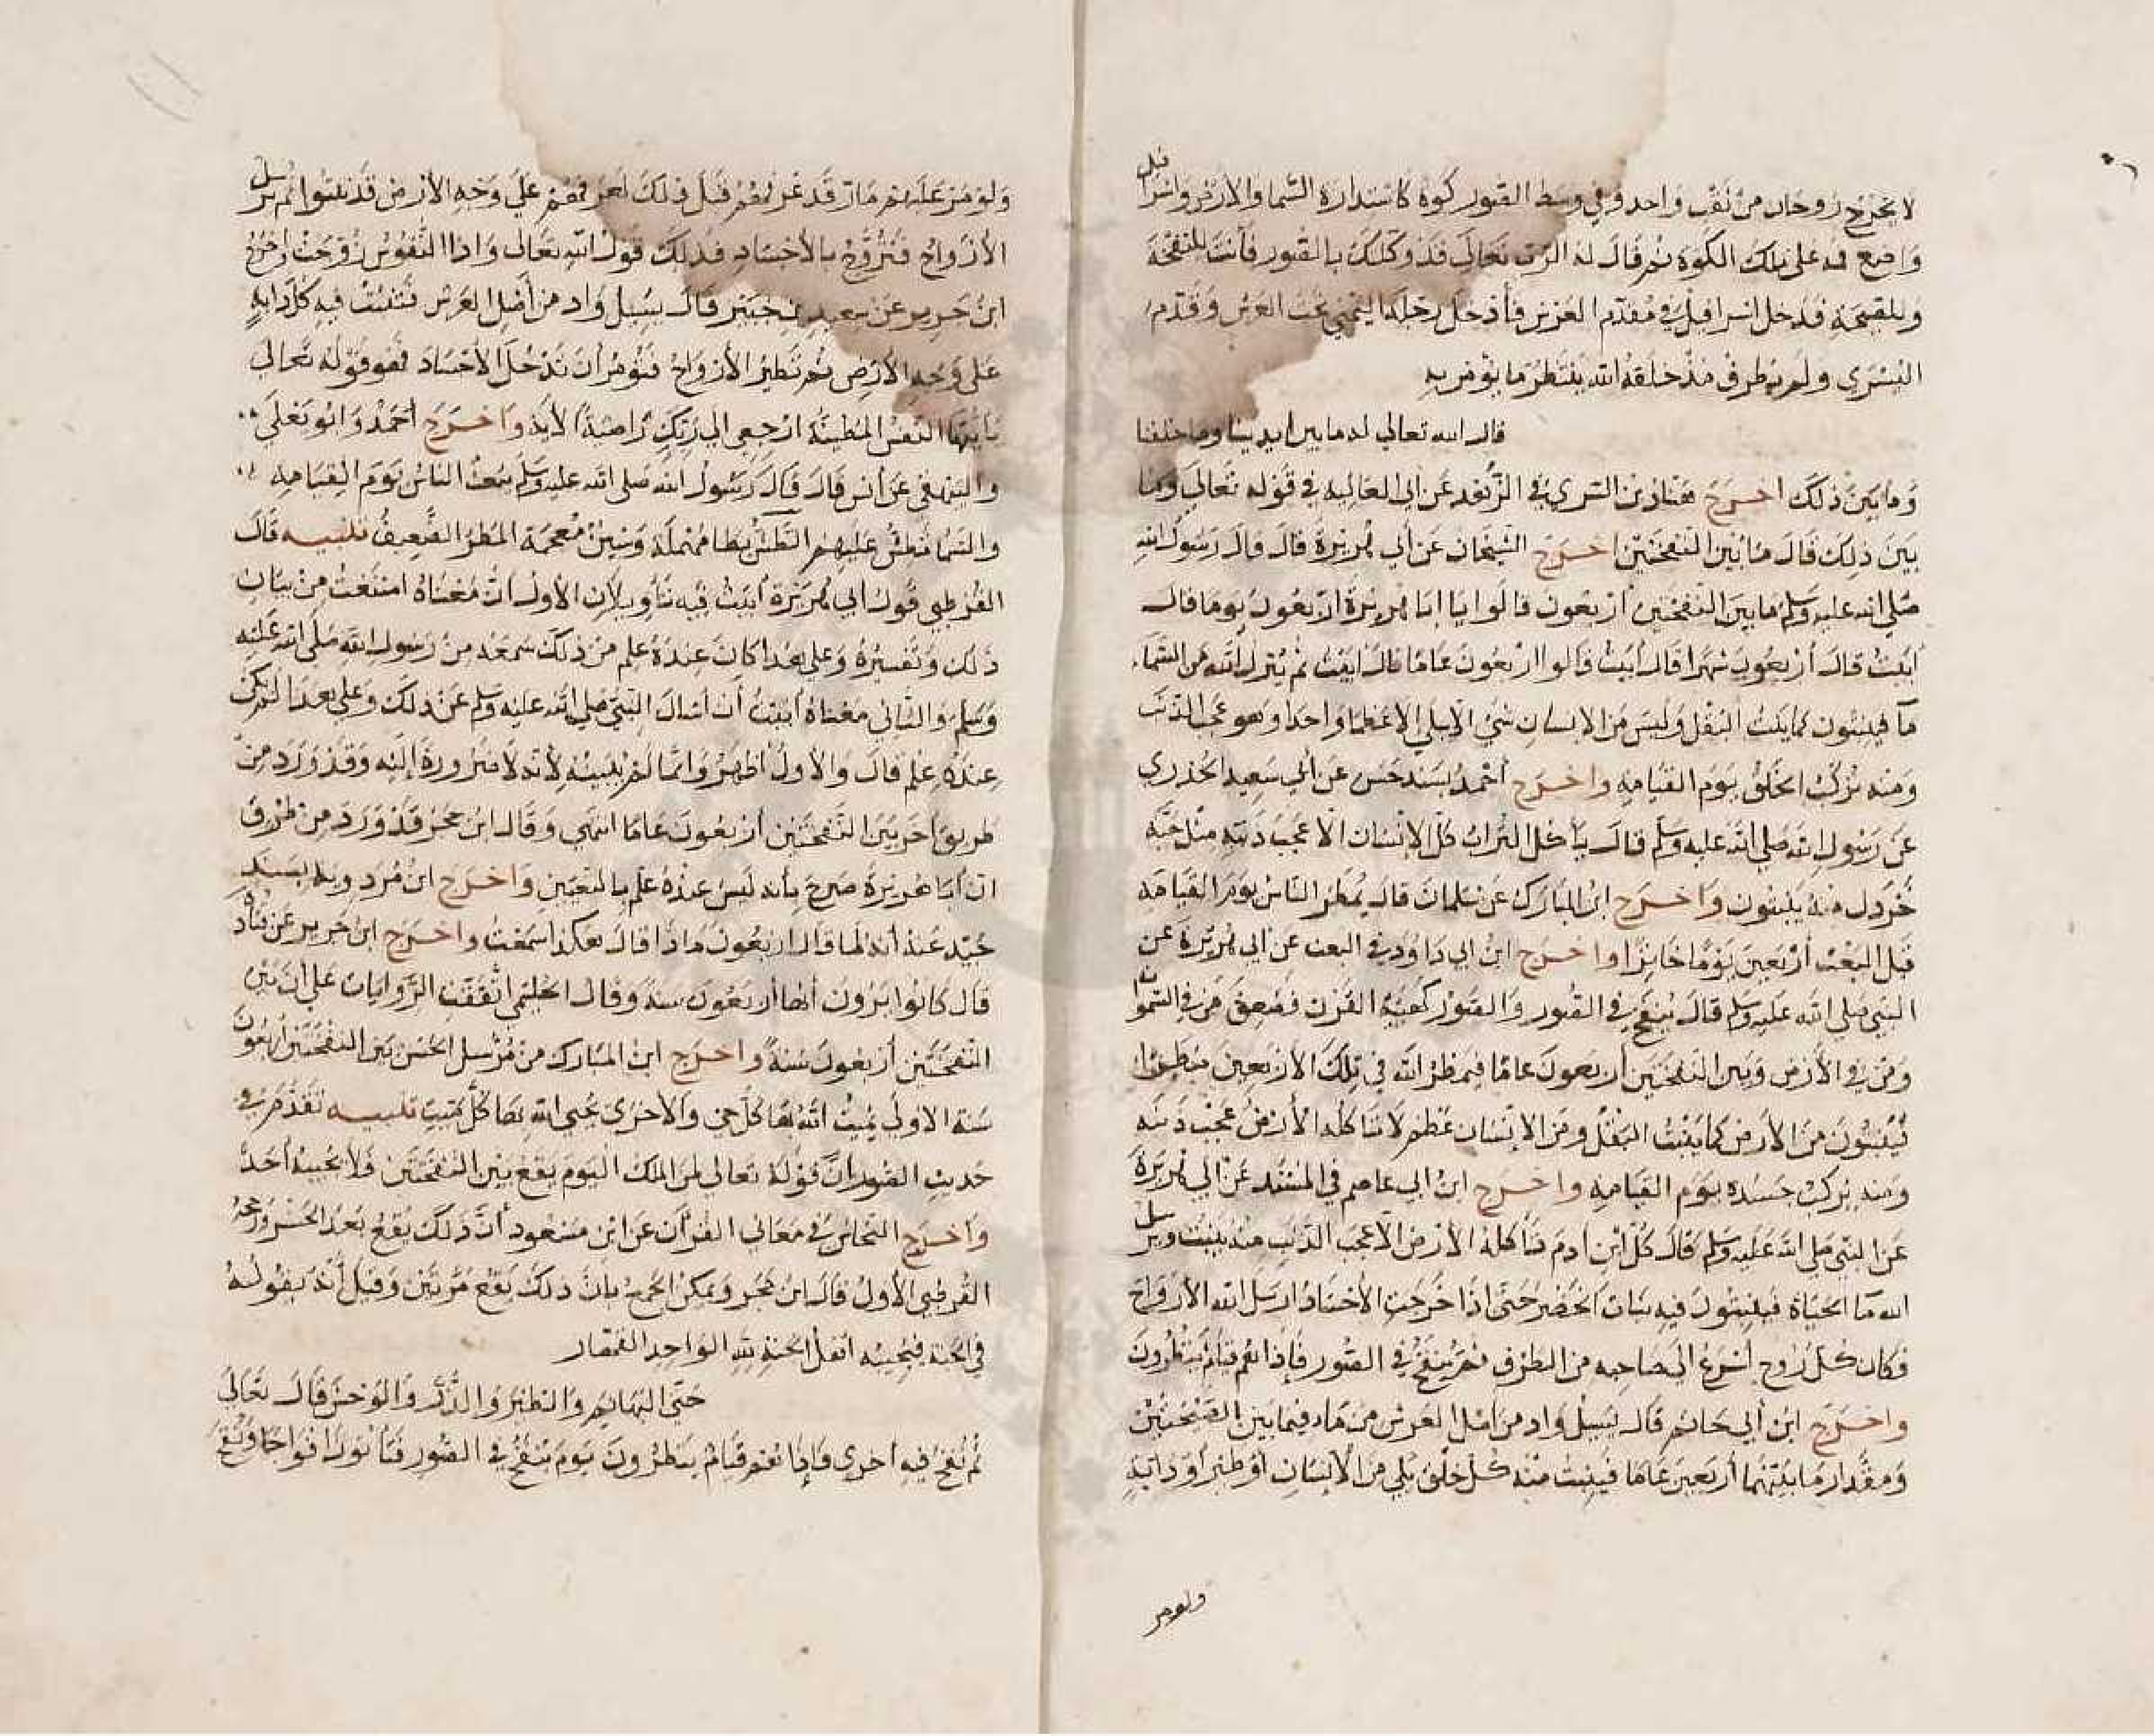 لا يخرج روحان من ثقب واحد وفي وسط الصور كوة كاستدارة السما والارض واسرافيل
واضع فمه على تلك الكوة ثم قال له الرب تعالى قد وكلتك بالصور فأنت للنفخة
وللصيحة فدخل اسرافيل في مقدم العرش فأدخل رجله اليمنى تحت العرش وقدم
اليسرى ولم يطرف مذ خلقه الله ينتظر ما يؤمر به
قال الله تعالي له ما بين ايدينا وما خلفنا
وما بين ذلك اخرج هناد بن السري في الزهد عن ابى العاليه في قوله تعالي وما
بين ذلك قال ما بين النفختين اخرج الشيخان عن أبي هريرة قال قال رسول الله
صلى الله عليه وسلم ما بين النفختين اربعون قالوا يا ابا هريرة اربعون يوما قال
ابيت قال أربعون شهرا قال أبيت قالوا اربعون عاما قال ابيت ثم ينزل الله من السماء
مآ فينبتون كما ينبت البقل وليس من الانسان شي الا يبلي الا عظما واحدا وهو عجب الذنب
ومنه يركب الخلق يوم القيامه واخرج أحمد بسند حسن عن أبي سعيد الخدري
عن رسول الله صلى الله عليه وسلم قال يأكل التراب كل الإنسان الا عجب ذنبه مثل حبة
خردل منه ينبتون واخرج ابن المبارك عن سلمان قال يمطر الناس يوم القيامة
قبل البعث أربعين يوما خاثرا واخرج ابن ابي داوود في البعث عن ابي هريرة عن
النبي صلى الله عليه وسلم قال ينفخ في الصور والصور كهيئة القرن فصعق من في السموات
ومن في الأرض وبين النفختين أربعون عاما فيمطر الله في تلك الاربعين مطرا
فينبتون من الارض كما ينبت البقل ومن الإنسان عظم لا تاكله الأرض عجب ذنبه
ومنه يركب جسده يوم القيامه واخرج ابن ابي عاصم في المسند عن ابي هريرة
عن النبي صلى الله عليه وسلم قال كل ابن ادم تأكله الأرض الا عجب الذنب منه ينبت ويرسل
الله مآ الحياة فينبتون فيه نبات الخضر حتى اذا خرجت الأجساد ارسل الله الأرواح
فكان كل روح أسرع الى صاحبه من الطرف ثم ينفخ في الصور فإذا هم قيام ينظرون
واخرج ابن أبي حاتم قال يسيل واد من اصل العرش من ماء فيما بين الصيحتين
ومقدار ما بينهما أربعين عاما فينبت منه كل خلق بلي من الانسان او طير او دابة
ولو مر
ولو مر عليهم مار قد عرفهم قبل ذلك لعرفهم على وجه الأرض قد نبتوا ثم يرسل
الأرواح فتزوج بالأجساد فذلك قول الله تعالى واذا النفوس زوجت واخرج
ابن جرير عن سعيد بن جبير قال يسيل واد من أصل العرش فتنبت فيه كل دابة
على وجه الأرض ثم تطير الأرواح فتؤمر أن تدخل الأجساد فهو قوله تعالى
يا أيتها النفس المطمئنة ارجعي الي ربك راضية الآية واخرج أحمد وابو يعلى
والبيهقي عن أنس قال قال رسول الله صلى الله عليه وسلم يبعث الناس يوم القيامة
والسما تطش عليهم الطش بطا مهملة وشين معجمة المطر الضعيف تنبيه قال
القرطبي قول ابي هريرة أبيت فيه تأويلان الأول ان معناه امتنعت من بيان
ذلك وتفسيره وعلى هذا كان عنده علم من ذلك سمعه من رسول الله صلى الله عليه
وسلم والثاني معناه أبيت أن اسال النبي صلى الله عليه وسلم عن ذلك وعلي هذا لم يكن
عنده علم قال والاول أظهر وانما لم يبينه لأنه لا ضرورة إليه وقد ورد من
طريق اخر بين النفختين أربعون عاما انتهى وقال ابن حجر قد ورد من طرق
ان أبا هريرة صرح بأنه ليس عنده علم بالتعيين واخرج ابن مردويه بسند
جيد عنه أنه لما قال اربعون ماذا قال هكذا سمعت واخرج ابن جرير عن قتادة
قال كانوا يرون أنها أربعون سنة وقال الحليمي اتفقت الروايات على ان بين
النفختين أربعون سنة واخرج ابن المبارك من مرسل الحسن بين النفختين أربعون
سنة الاولي يميت الله بها كل حي والاخرى يحيي الله بها كل ميت تنبيه تقدم في
حديث الصور ان قوله تعالى لمن الملك اليوم يقع بين النفختين فلا يجيبه أحد
واخرج النحاس في معاني القرآن عن ابن مسعود أن ذلك يقع بعد الحشر ورجح
القرطبي الأول قال ابن حجر ويمكن الجمع بان ذلك يقع مرتين وقيل أنه يقوله
في الجنة فيجيبه اهل الجنة لله الواحد القهار
حتى البهائم والطير والذر والوحش قال تعالى
ثم نفخ فيه اخرى فاذا هم قيام ينظرون يوم ينفخ في الصور فتأتون أفواجا ونفخ